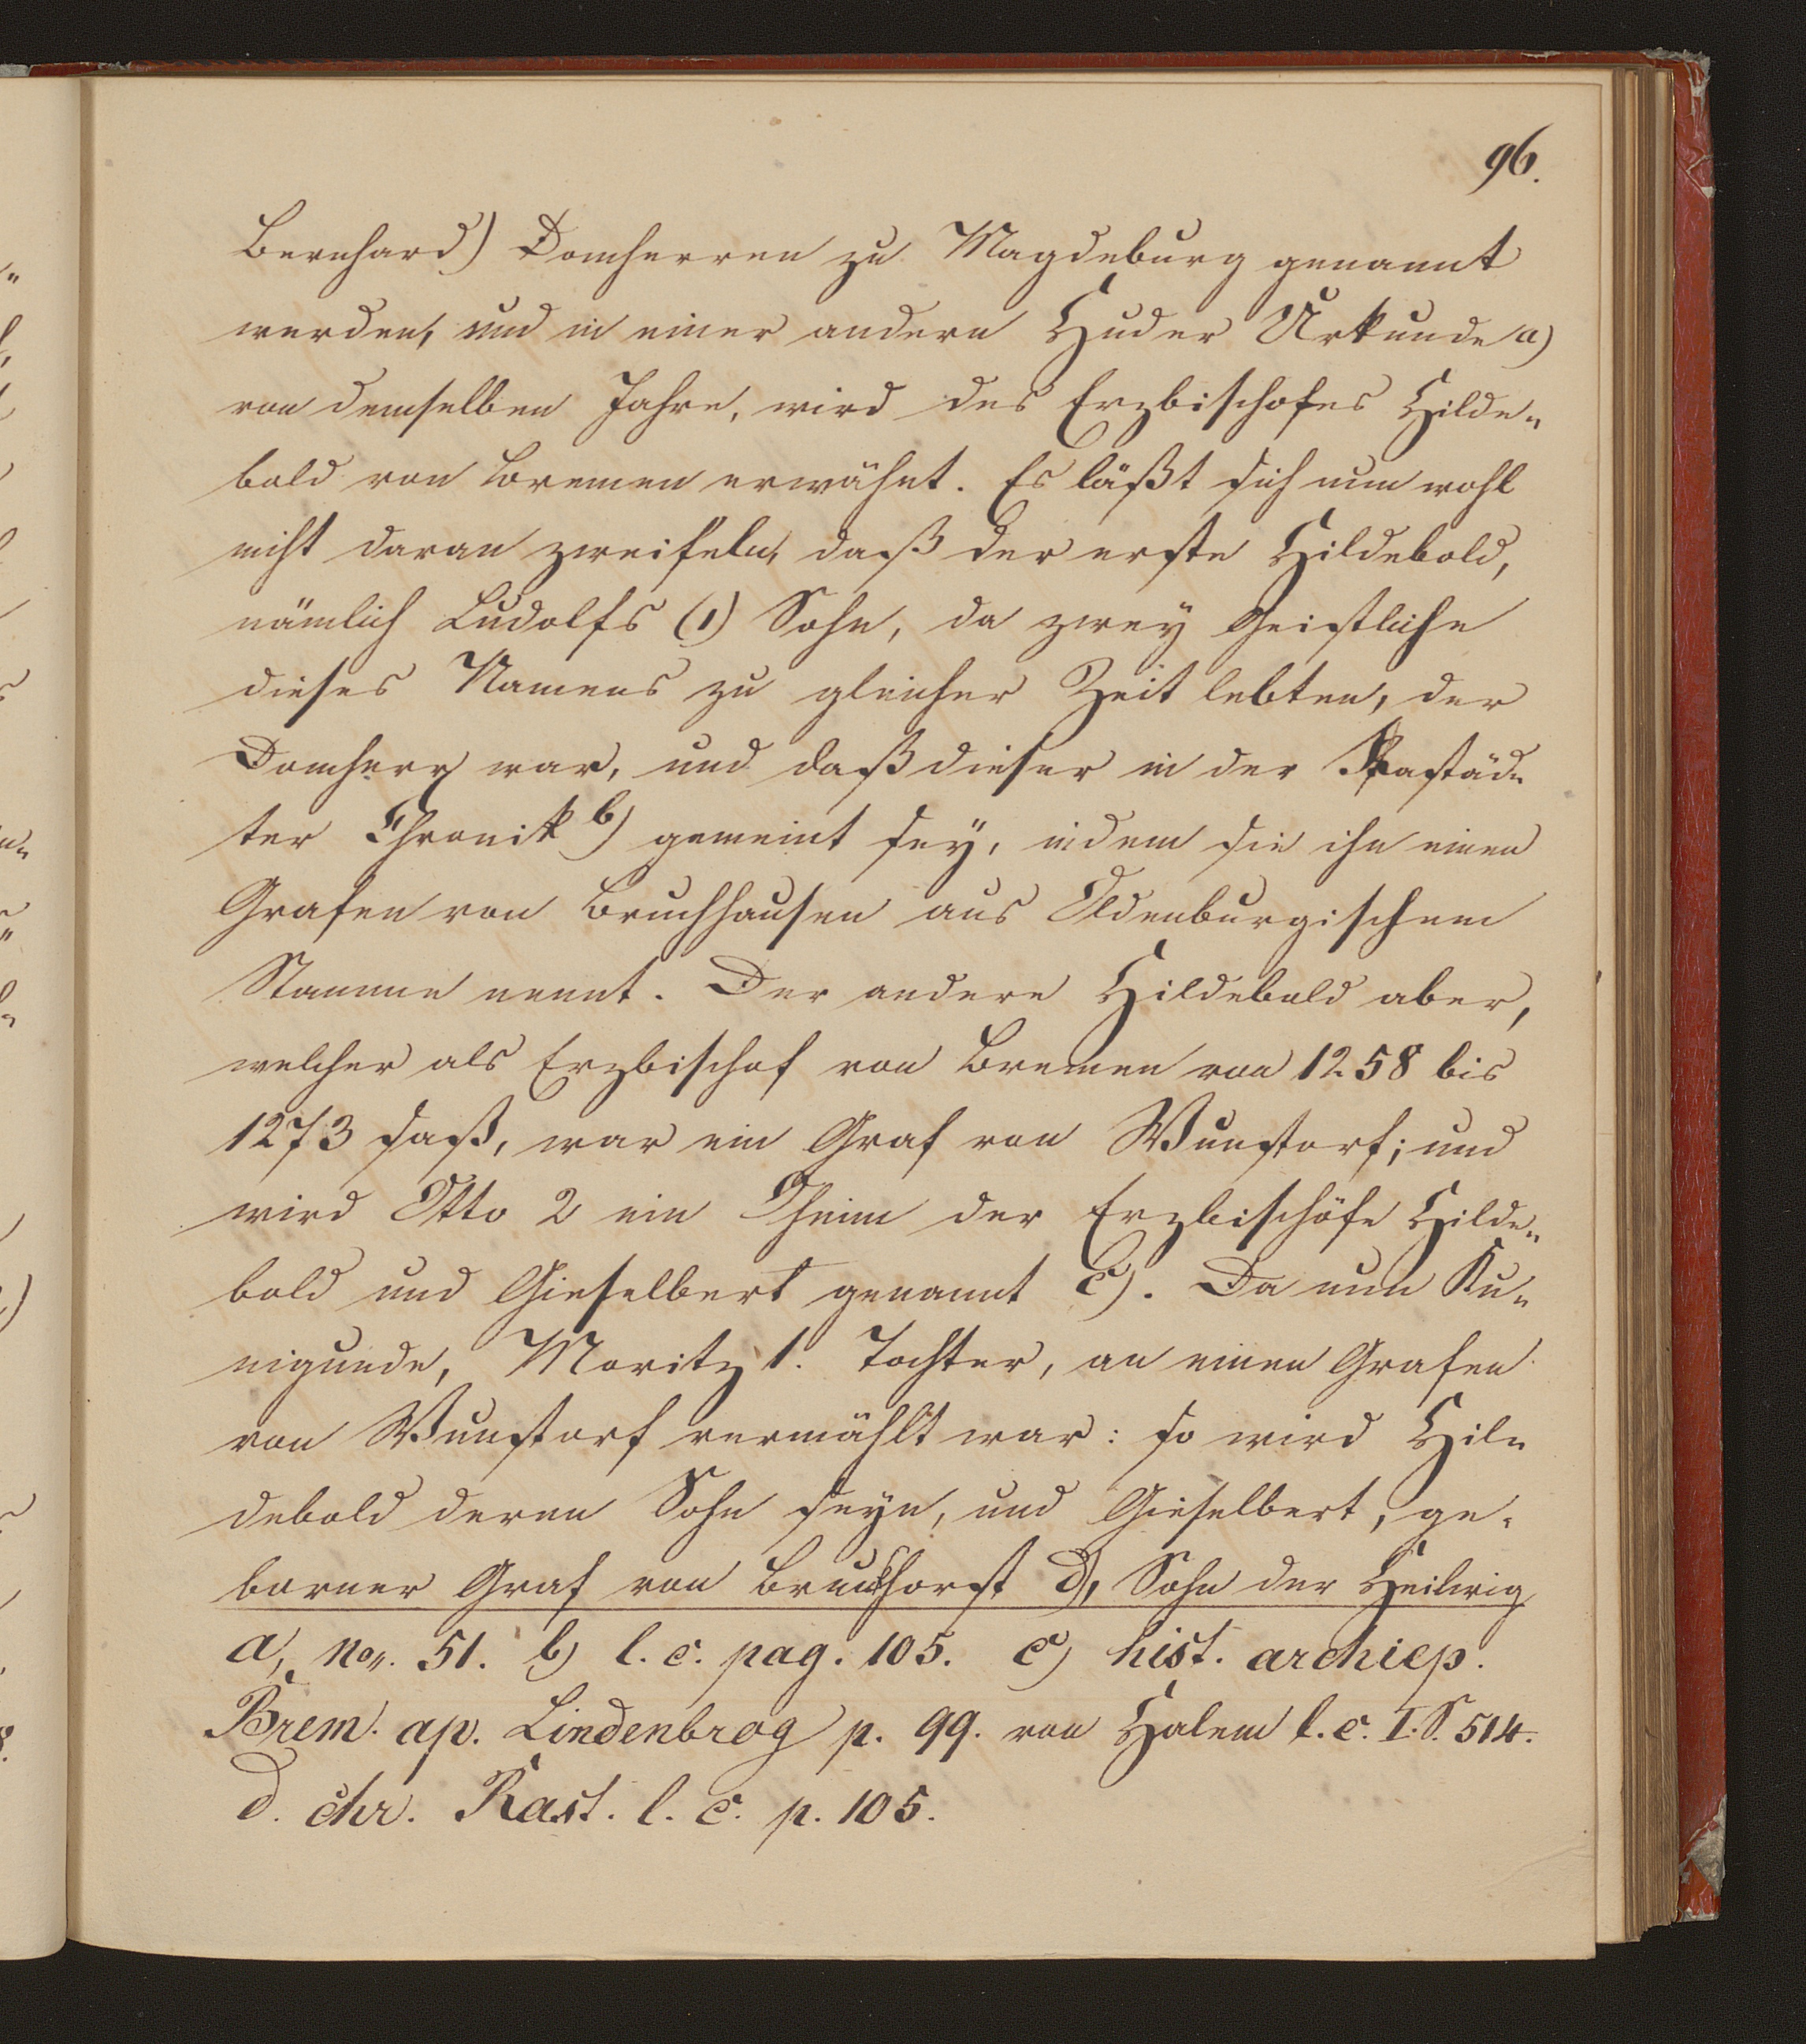 96.
Bernhard) Domherren zu Magdeburg genannt
werden, und in einer andern Huder Urkunde a)
von demselben Jahre, wird des Erzbischofes Hilde„
bold von Bremen erwähnt. Es läßt sich nun wohl
nicht daran zweifeln, daß der erste Hildebold,
nämlich Ludolfs (1) Sohn, da zwey Geistliche
dieses Namens zu gleicher Zeit lebten, der
Domherr war, und daß dieser in der Rastäd„
ter Chronik b) gemeint sey, indem sie ihn einen
Grafen von Bruchhausen aus Oldenburgischem
Stamme nennt. Der andere Hildebold aber,
welcher als Erzbischof von Bremen von 1258 bis
1273 saß, war ein Graf von Wunstorf; und
wird Otto 2 ein Oheim der Erzbischöfe Hilde„
bold und Gieselbert genannt c). Da nun Ku„
nigunde, Moritz 1. Tochter, an einen Grafen
von Wunstorf vermählt war: so wird Hil„
debold deren Sohn seyn, und Gieselbert, ge„
borner Graf von Brunkhorst d), Sohn der Heilwig
a, No. 51. b) l. c. pag. 105. c) hist. archiep.
Brem. ap. Lindenbrog p. 99. von Halem l. c. I. S. 514.
d. chr. Rast. l. c. p. 105.